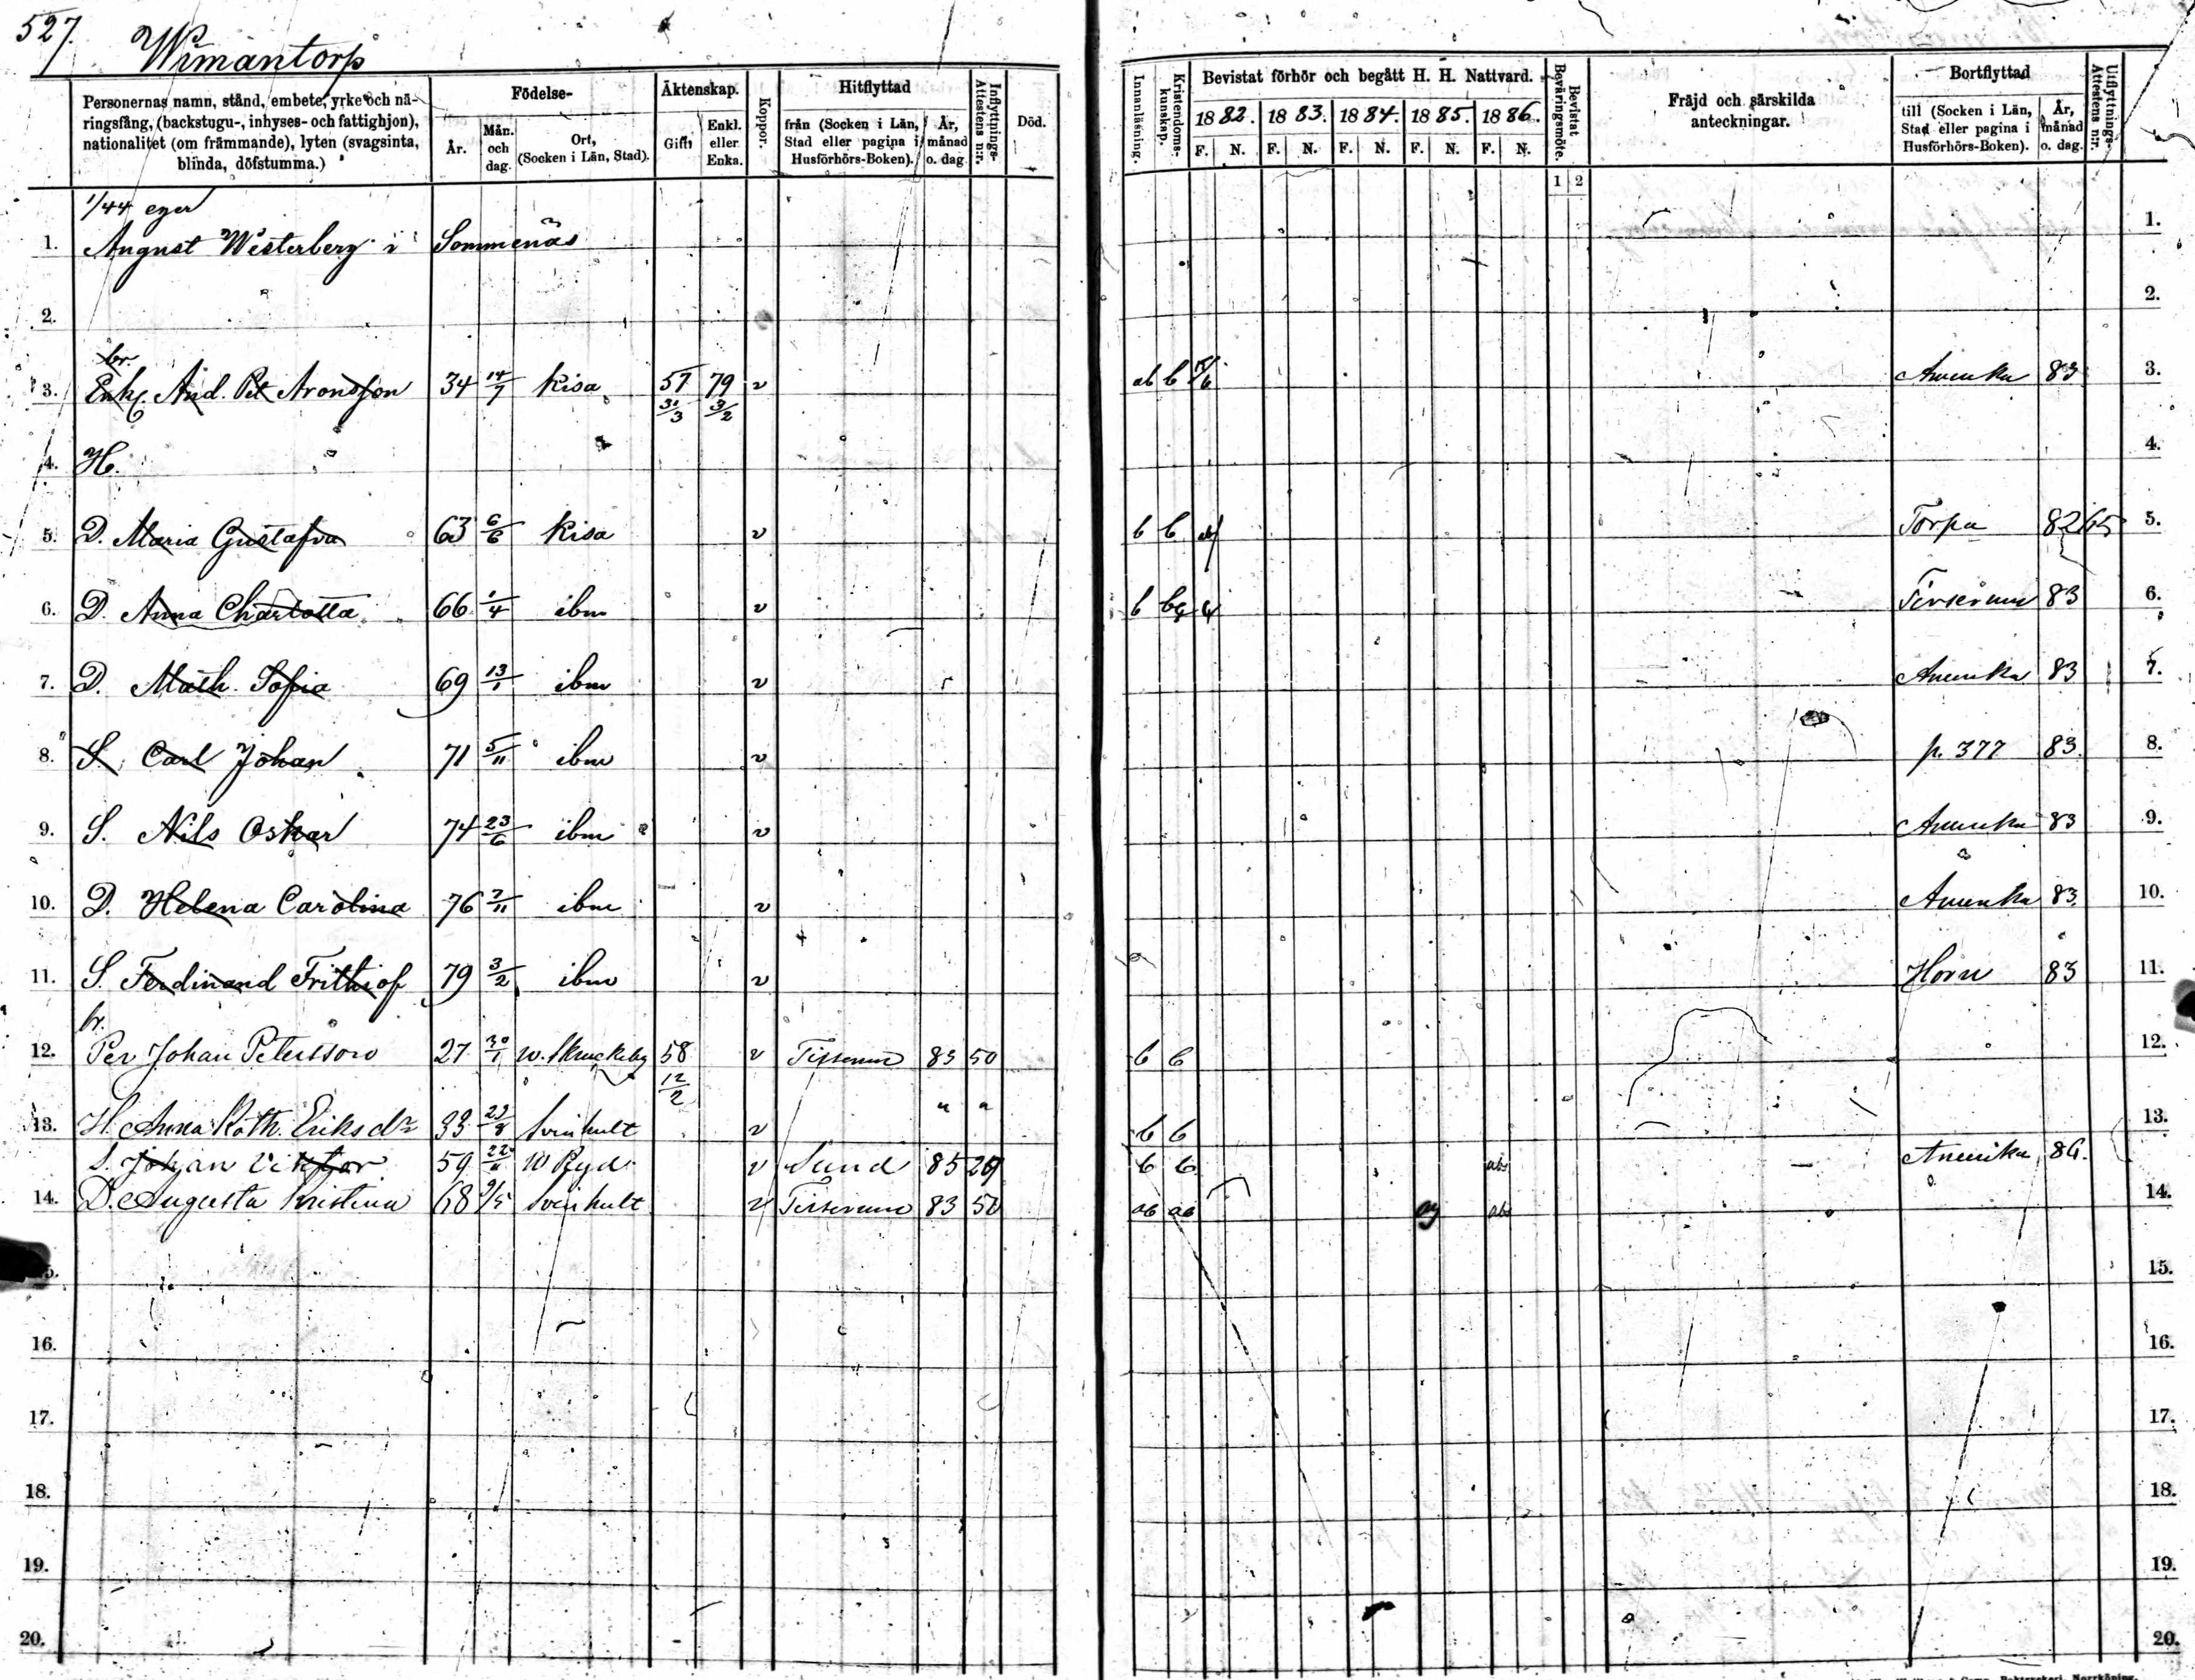 527.
Wimantorp
Personernas namn, stånd, embete, yrke och nä-
ringsfång, (backstugu-, inhyses- och fattighjon),
nationalitet (om främmande), lyten (svagsinta,
blinda, döfstumma.)
Födelse-
År.
Mån. och dag.
Ort, (Socken i Län, Stad).
Äktenskap.
Gift
Enkl. eller Enka.
Koppor.
Hitflyttad
från (Socken i Län, Stad eller pagina i Husförhörs-Boken).
År, månad o. dag.
Inflyttnings-Attestens n:r.
Död.
Innanläsning.
Kristendoms-kunskap.
Bevistat förhör och begått H. H. Nattvard.
1882. 1883. 1884. 1885. 1886.
F. N. F. N. F. N. F. N. F. N.
Bevistat Beväringsmöte.
1 2
Fräjd och särskilda
anteckningar.
Bortflyttad
till (Socken i Län, Stad eller pagina i Husförhörs-Boken).
År, månad o. dag.
Utflyttnings-Attestens n:r.
1/44 eger
1. August Westerberg i Sommenäs 1.
2. 2.
br.
3. Enkl. And. Pet Aronsson 34 14/7 Kisa 57 31/3 79 3/2 v ab b Amerika 83 3.
4. H. 4.
5. D. Maria Gustafva 63 6/6 Kisa v b b Torpa 82 65 5.
6. D. Anna Charlotta 66 1/4 ibm v b 83 6.
7. D. Math. Sofia 69 13/1 ibm v Amerika 83 7.
8. S. Carl Johan 71 5/11 ibm v p. 377 83. 8.
9. S. Nils Oskar 74 23/6 ibm v Amerika 83 9.
10. D. Helena Carolina 76 2/11 ibm v Amerika 83. 10.
11. S. Ferdinand Frithiof 79 3/2 ibm v Horn 83 11.
br.
12. Per Johan Petersson 27 30/1 58 12/2 v Tirserum 83 50 b b 12.
13. H. Anna Kath. Eriksdr 33 23/8 Svinhult v " " b b 13.
S. Johan Viktor 59 22/11 W Ryd v Sund 85 29 b b abs Amerika 86.
14. D. Augusta Kristina 68 9/5 Svinhult v Tirserum 83 50 ab ab abs 14.
15.
16. 16.
17. 17.
18. 18.
19. 19.
20. 20.